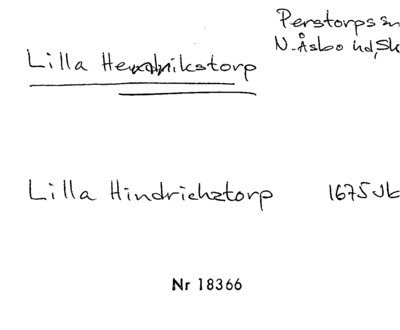 Perstorps sn
N. Åsbo hd, Sk
Lilla Hendrikstorp
Lilla Hindrichztorp 1675 Jb
Nr 18366